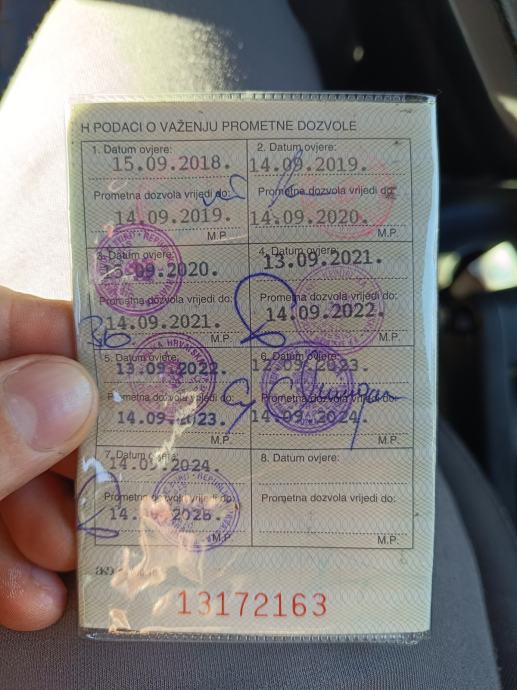 H PODACI O VAŽENJU PROMETNE DOZVOLE
1. Datum ovjere:
15.09.2018.
Prometna dozvola vrijedi do:
14.09.2019.
M.P.
2. Datum ovjere:
14.09.2019.
Prometna dozvola vrijedi do:
14.09.2020.
M.P.
3. Datum ovjere:
15.09.2020.
Prometna dozvola vrijedi do:
14.09.2021.
M.P.
4. Datum ovjere:
13.09.2021.
Prometna dozvola vrijedi do:
14.09.2022.
M.P.
5. Datum ovjere:
13.09.2022.
Prometna dozvola vrijedi do:
14.09.2023.
M.P.
6. Datum ovjere:
12.09.2023.
Prometna dozvola vrijedi do:
14.09.2024.
M.P.
7. Datum ovjere:
14.09.2024.
Prometna dozvola vrijedi do:
M.P.
8. Datum ovjere:
Prometna dozvola vrijedi do:
M.P.
13172163